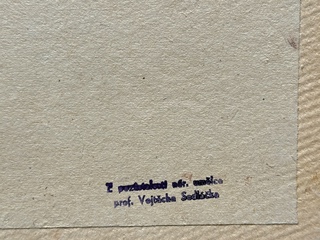 Z pozůstalosti nár. umělce
prof. Vojtěcha Sedláčka